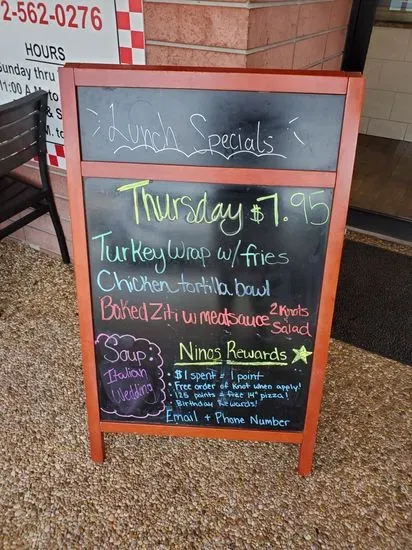 2-562-0276
HOURS
Lunch Specials
Thursday $7.95
Turkey Wrap w/ fries
Chicken tortilla bowl
Baked Ziti w meatsauce 2 Knots & Salad
Soup:
Italian
Wedding
Ninos Rewards
• $1 spent = 1 point
• Free order of Knot when apply!
• 125 points = free 14" pizza!
• Birthday Rewards!
Email + Phone Number